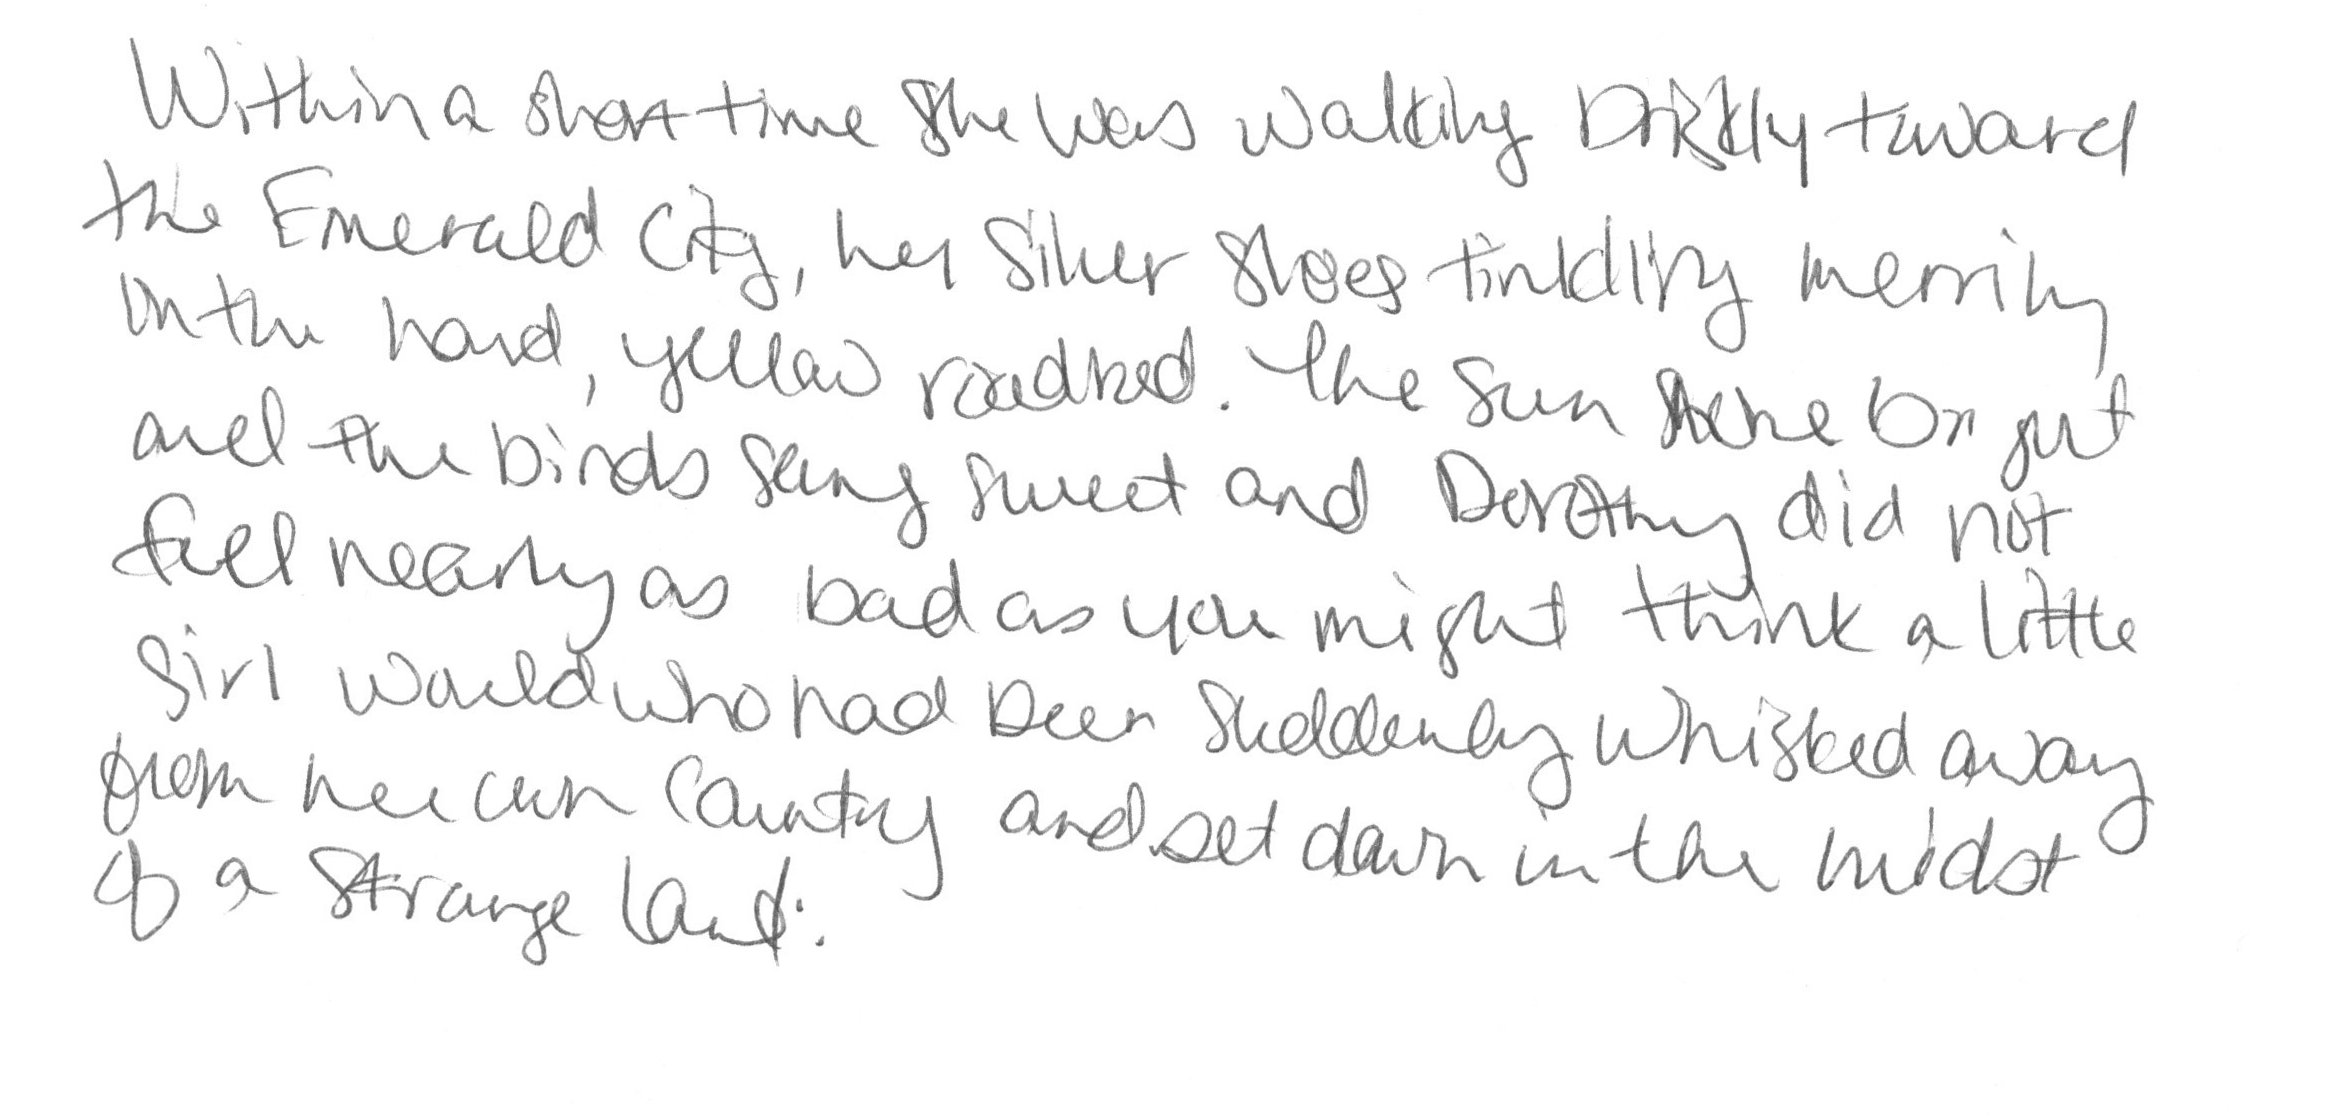 Within a short time she was walking briskly toward
the Emerald City, her Silver Shoes tinkling merrily
on the hard, yellow roadbed. The sun shone bright
and the birds sang sweet and Dorothy did not
feel nearly as bad as you might think a little
girl would who had been suddenly whisked away
from her own country and set down in the midst
of a strange land.